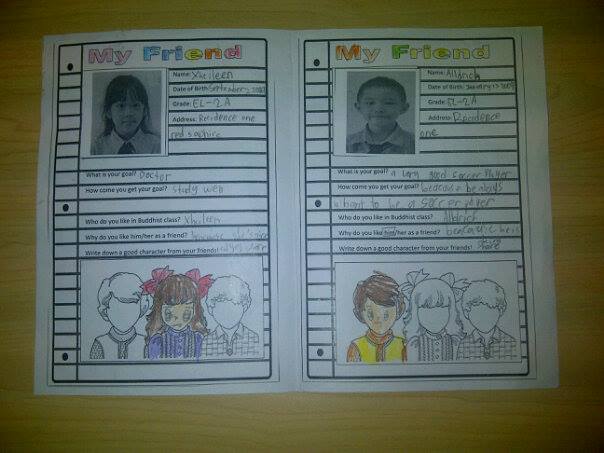 My Friend
Name: Xhileen
Date of Birth: September
Grade: EL-2A
Address: Residence one
What is your goal? Doctor
How come you get your goal? study well
Who do you like in Buddhist class? Xhileen
Why do you like him/her as a friend? because she's
Write down a good character from your friends!
My Friend
Name: Alldrich
Date of Birth:
Grade: EL-2A
Address: Residence
one
What is your goal? a very good soccer player
How come you get your goal?
want to be a soccer player
Who do you like in Buddhist class? Alldrich
Why do you like him/her as a friend? he is
Write down a good character from your friends! share